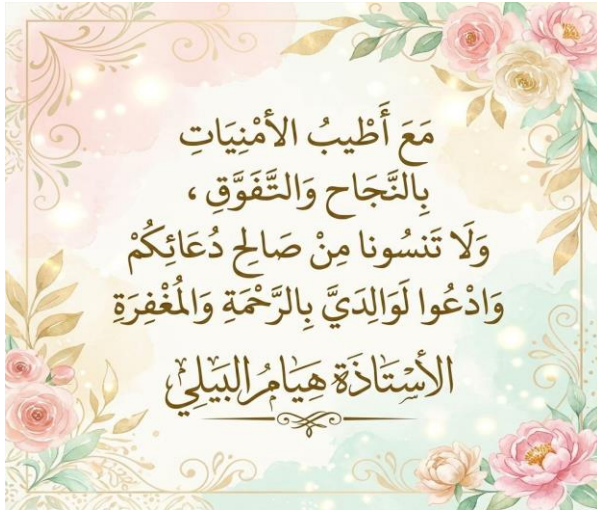 مَعَ أَطْيبُ الأمْنِيَاتِ
بِالنَّجَاح وَالتَّفَوَّقِ ،
وَلَا تَنسُونا مِنْ صَالِح دُعَائِكُمْ
وَادْعُوا لَوَالِدَيَّ بِالرَّحْمَةِ وَالمُغْفِرَةِ
الأسْتَاذَة هِيَامُ البَيَلِي